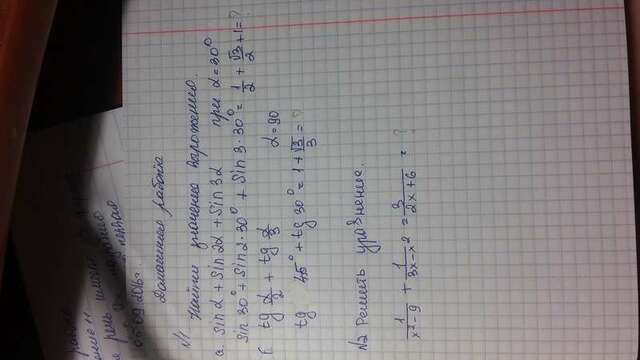 05.09.2016г
Домашняя работа
№1
Найти значение выражения.
а. sin α + sin 2α + sin 3α при α = 30°
sin 30° + sin 2·30° + sin 3·30° = 1/2 + √3/2 + 1 = ?
б. tg α/2 + tg α/3 α = 90
tg 45° + tg 30° = 1 + √3/3 = ?
№2 Решить уравнение.
1/(x²-9) + 1/(3x-x²) = 3/(2x+6) = ?